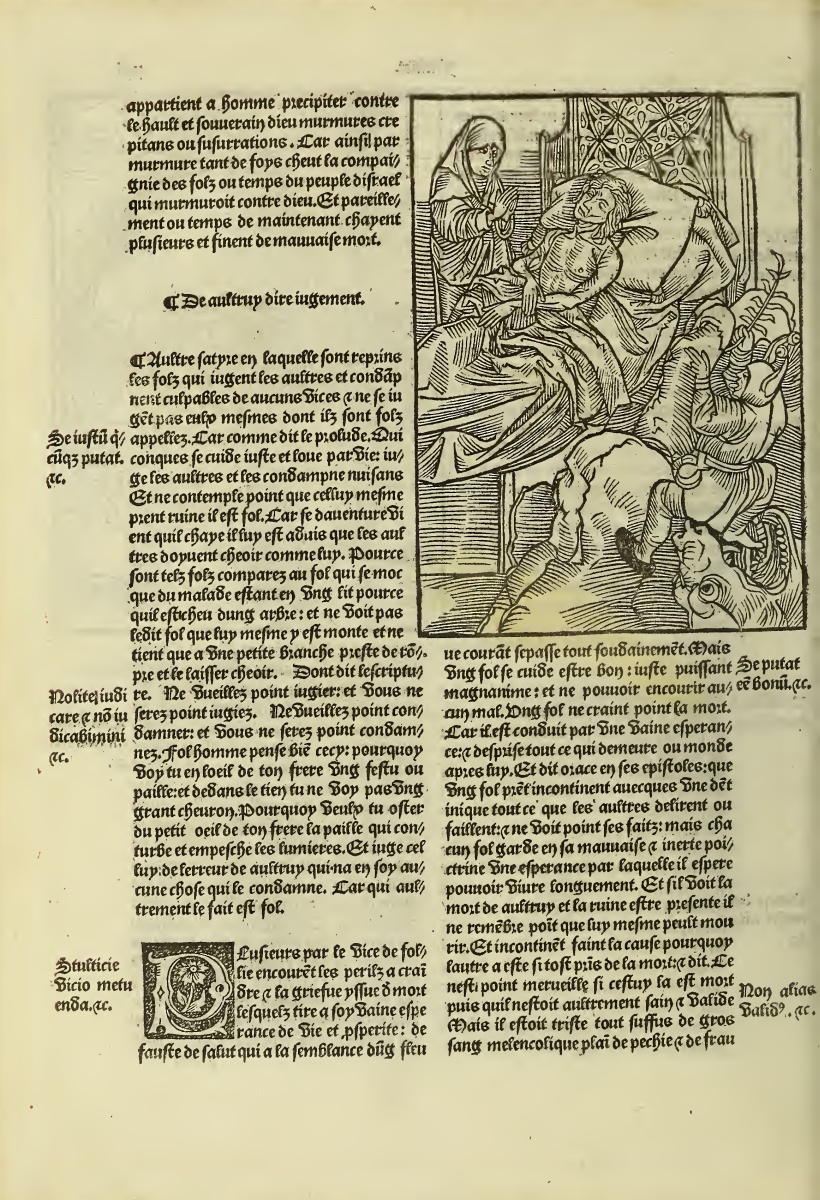 appartient a homme precipiter contre
le hault et souuerain dieu murmures cre
pitans ou susurrations. Car ainsi par
murmure tant de foys cheut la compai/
gnie des folz ou temps du peuple disrael
qui murmuroit contre dieu. Et pareille/
ment ou temps de maintenant chayent
plusieurs et finent de mauuaise mort.
¶ De aultruy dire iugement.
¶ Aultre satyre en laquelle sont reprins
les folz qui iugent les aultres et condāp
nent culpables de aucuns vices ⁊ ne se iu
gēt pas eulx mesmes dont ilz sont folz
appellez. Car comme dit le prolude. Qui
conques se cuide iuste et loue par vie: iu/
ge les aultres et les condampne nuisans
Et ne contemple point que celluy mesme
prent ruine il est fol. Car se dauenture vi
ent quil chaye il luy est aduis que les aul
tres doyuent cheoir comme luy. Pource
sont telz folz comparez au fol qui se moc
que du malade estant en vng lit pource
quil est cheu dung arbre: et ne voit pas
ledit fol que luy mesme y est monte et ne
tient que a vne petite branche preste de rō/
pre et le laisser cheoir. Dont dit lescriptu/
re. Ne vueillez point iugier: et vous ne
serez point iugiez. Ne vueillez point con/
damner: et vous ne serez point condam/
nez. Fol homme pense biē cecy: pourquoy
voy tu en loeil de ton frere vng festu ou
paille: et dedans le tien tu ne voy pas vng
grant cheuron. Pourquoy veulx tu oster
du petit oeil de ton frere la paille qui con/
turbe et empesche les lumieres. Et iuge cel
luy: de lerreur de aultruy qui na en soy au/
cune chose qui le condamne. Car qui aul/
trement le fait est fol.
Se iustū q̄/
cūqz putat.
⁊c.
Nolite iudi
care ⁊ nō iu
dicabimini
⁊c.
Stulticie
vicio metu
enda. ⁊c.
PLusieurs par le vice de fol/
lie encourēt les perilz a crai
dre ⁊ la griefue yssue d mort
lesquelz tire a soy vaine espe
rance de vie et ꝓsperite: de
faulte de salut qui a la semblance dūg fleu
ue courāt se passe tout soudainemēt. Mais
vng fol se cuide estre bon: iuste puissant
magnanime: et ne pouuoir encourir au/
cun mal. Vng fol ne craint point la mort.
Car il est conduit par vne vaine esperan/
ce: ⁊ desprise tout ce qui demeure ou monde
apres luy. Et dit orace en ses epistoles: que
vng fol prēt incontinent auecques vne dēt
inique tout ce que les aultres desirent ou
faillent: ⁊ ne voit point ses faitz: mais cha
cun fol garde en sa mauuaise ⁊ inerte poi/
ctrine vne esperance par laquelle il espere
pouuoir viure longuement. Et sil voit la
mort de aultruy et la ruine estre presente il
ne remēbre poīt que luy mesme peult mou
rir. Et incontinēt faint la cause pourquoy
lautre a este si tost pris de la mort: ⁊ dit. Ce
nest point merueille si cestuy la est mort
puis quil nestoit aultrement sain ⁊ valide
Mais il estoit triste tout suffus de gros
sang melencolique plaī de pechie ⁊ de frau
Se putat
eē bonū. ⁊c.
Non alias
valid⁹. ⁊c.